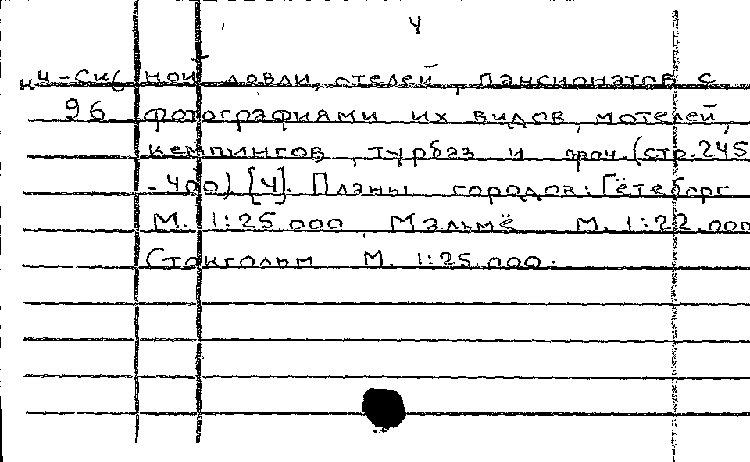 4
К4-Ск6 ной ловли, отелей, пансионатов с
96 фотографиями их видов, мотелей,
кемпингов, турбаз и проч. (стр. 245
-400) [4]. Планы городов: Гётеборг
М. 1:25 000, Мальмё М. 1:22.000
Стокгольм М. 1:25.000.